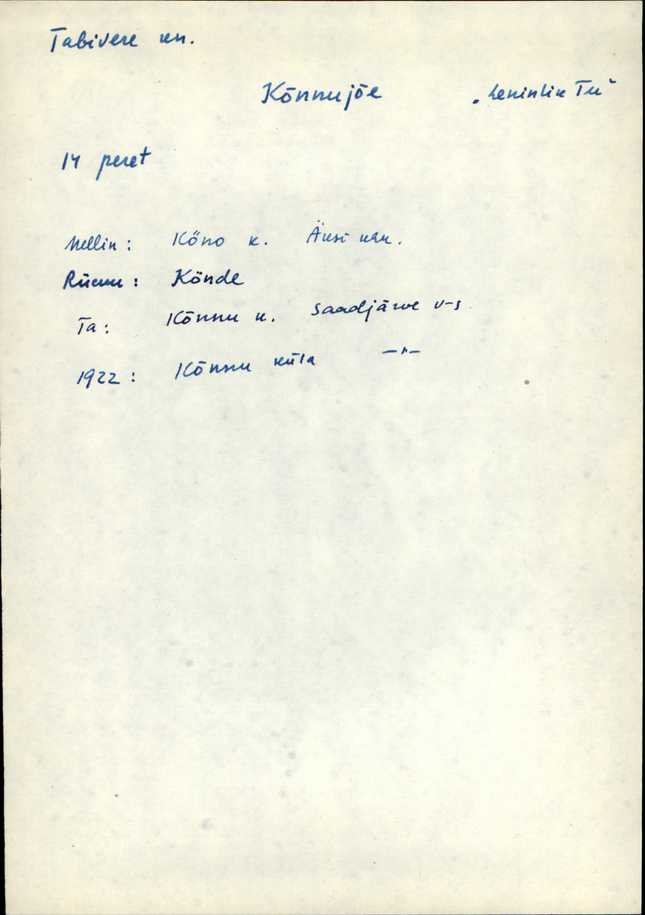 Tabivere kn.
Kõnnujõe „Leninlik Tee"
14 peret
Mellin: Kőno k. Äksi
Rücker: Könde
Ta: Kõnnu k. Saadjärve v-s
1922: Kõnnu küla —"—